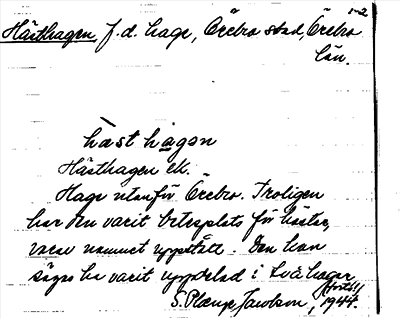 1-2
Hästhagen, f.d. hage, Örebro stad, Örebro
län.
hàst hagən
Hästhagen ek.
Hage utanför Örebro. Troligen
har den varit betesplats för hästar,
varav namnet uppstått. Den kan
sägas ha varit uppdelad i två hagar
(forts!!)
S. Plænge Jacobson, 1944.